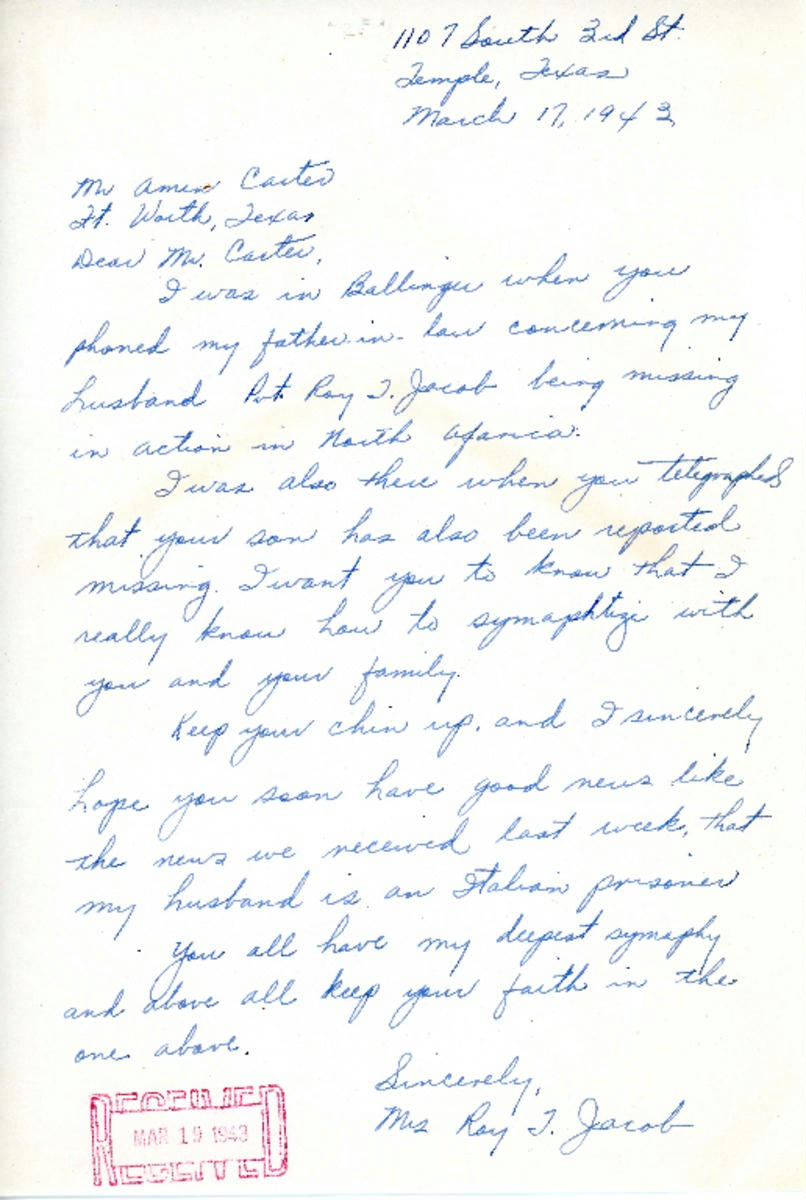 1107 South 3rd St.
Temple, Texas
March 17, 1943
Mr Amen Carter
Ft. Worth, Texas
Dear Mr. Carter,
I was in Ballinger when you
phoned my father-in-law concerning my
husband Pvt. Roy T. Jacob being missing
in action in North Afarica.
I was also there when you telegraphed
that your son has also been reported
missing. I want you to know that I
really know how to symaphtize with
you and your family.
Keep your chin up, and I sincerely
hope you soon have good news like
the news we received last week, that
my husband is an Italian prisoner
You all have my deepest symaphy
and above all keep your faith in the
one above.
Sincerely,
Mrs Roy T. Jacob
RECEIVED
MAR 19 1943
RECEIVED